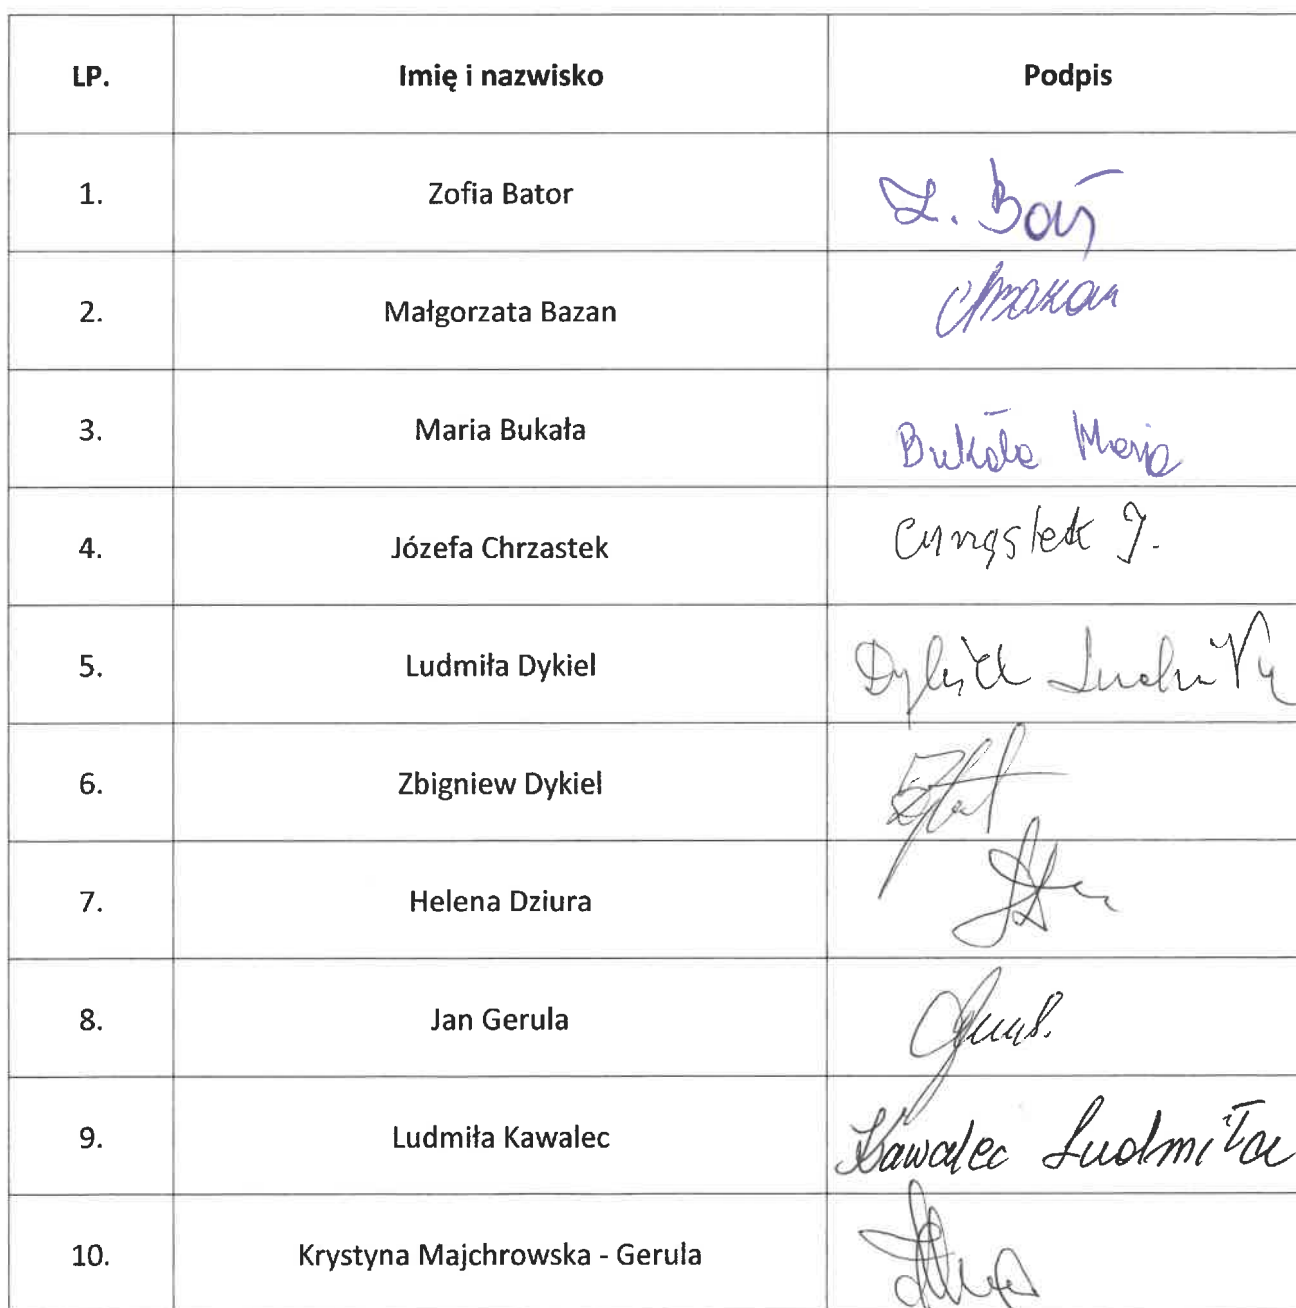 LP. Imię i nazwisko Podpis
1. Zofia Bator Z. Bat
2. Małgorzata Bazan
3. Maria Bukała Bukała Maria
4. Józefa Chrzastek Chrząstek J.
5. Ludmiła Dykiel Dykiel Ludmiła
6. Zbigniew Dykiel
7. Helena Dziura
8. Jan Gerula
9. Ludmiła Kawalec Kawalec Ludmiła
10. Krystyna Majchrowska - Gerula